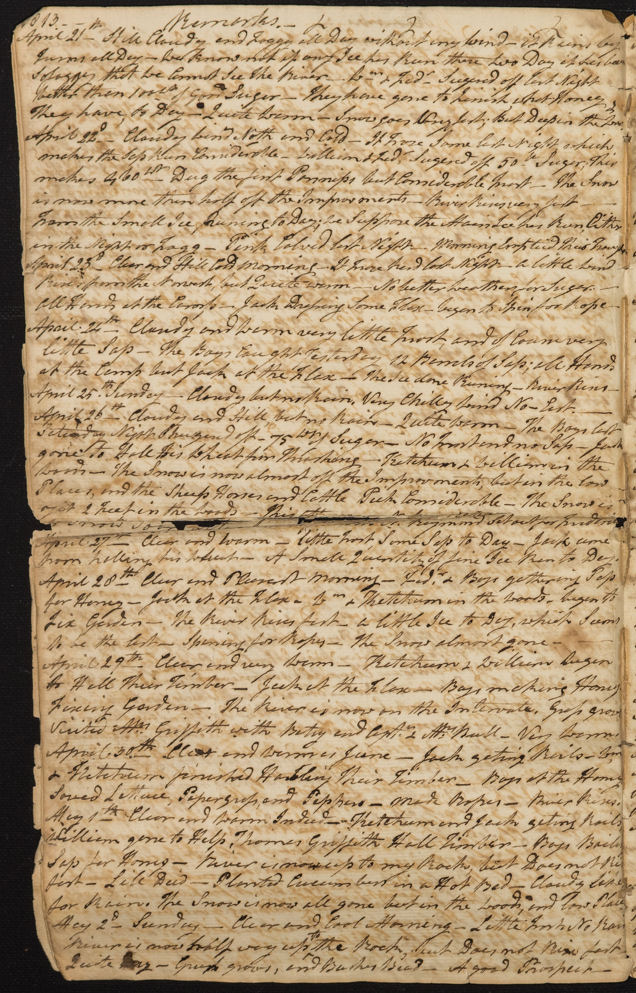 1813. — Remarks. —
April 21st — Still Cloudy and Foggy all Day without any wind — & Rains by
Turns all Day — we know not if any Ice has Run these two Day it has been
So foggy that we Cannot See the River — Wm & Fedr. Sugerd off last Night
better than 100 lb of Good Sugar — They have gone to finish about Honey
They have to Day — Quite warm — Snow goes Very fast, but Deep in the
April 22d — Cloudy wind North and Cold — It Froze Some last Night which
makes the Sap Run Considerable — William & Fedr. Sugerd off 50 lb Sugar, This
makes 460 lb — Dug the first Parsnips but Considerable frost — The Snow
is now more than half off the Improvments — River Rises very fast
from the Small Ice Runing to Day, we Suppose the Main Ice has Run Either
in the Night or fogg — Pink Calved last Night —
April 23d Clear and Still Cold morning — It froze hard last Night — a little wind
Rises from the Norwest, but Quite warm — No better weather for Sugar. —
all Hands at the Camp — Jack Dressing Some Flax — began to Spin for Rope
April 24th — Cloudy and warm very little frost, and of Course very
little Sap — The Boys Caught Yesterday 12 Barrels of Sap, all Hands
at the Camp but Jack at the Flax — The Ice done Runing — River Rises
April 25th Sunday — Cloudy but no Rain, Very Chilly wind No-East. —
April 26th — Cloudy and Still but no Rain — Quite warm — The Boys last
Saturday Night Shugerd off — 75 wty Sugar — No frost and no Sap — Jack
gone To Hall his wheat from Thrashing — Ketchum & William in the
woods — The Snow is now almost off the Improvements, but in the low
Places, and the Sheep Horses and Cattle Pick Considerable — The Snow is
yet 2 feet in the woods —
April 27 — Clear and warm — little frost Some Sap to Day — Jack came
from halling his wheat — A Small Quantity of fine Ice Ran to Day
April 28th Clear and Pleasant morning — Fedr. & Boys gathering Sap
for Honey — Jack at the Flax — Wm & Ketchum in the woods — began to
Fix Garden — The River Rises fast — a little Ice to Day, which Seems
to be the last — Spining for Ropes — The Snow almost gone —
April 29th Clear and very warm — Ketchum & William began
to Hall Their Timber — Jack at the Flax — Boys making Honey
Fixing Garden — The River is now on the Intervales, Grass grows
Visited Mrs Griffeth with Betsy and Captn & Mrs Bull — Very warm
April 30th Clear and warm as June — Jack geting Rails — Wm
& Ketchum finished Hawling Their Timber — Boys at the Honey
Sowed Lettuce, Pepergrass, and Peppers — made Ropes — River Rises.
May 1st Clear and warm Indeed — Ketchum and Jack geting Rails
William gone to Help Thomas Griffeth Hall Timber — Boys Boile
Sap for Honey — River is now up to my Rock, but Does not Rise
fast — Planted Cucumbers in a Hot Bed — Cloudy
for Rain. The Snow is now all gone but in the woods, and low Places
May 2d — Sunday — Clear and Cool Morning — Little frost No Rain
River is now half way up the Rock, but Does not Rise fast
Quite Dry — Grass grows, and Bushes Bud — A good Prospect —